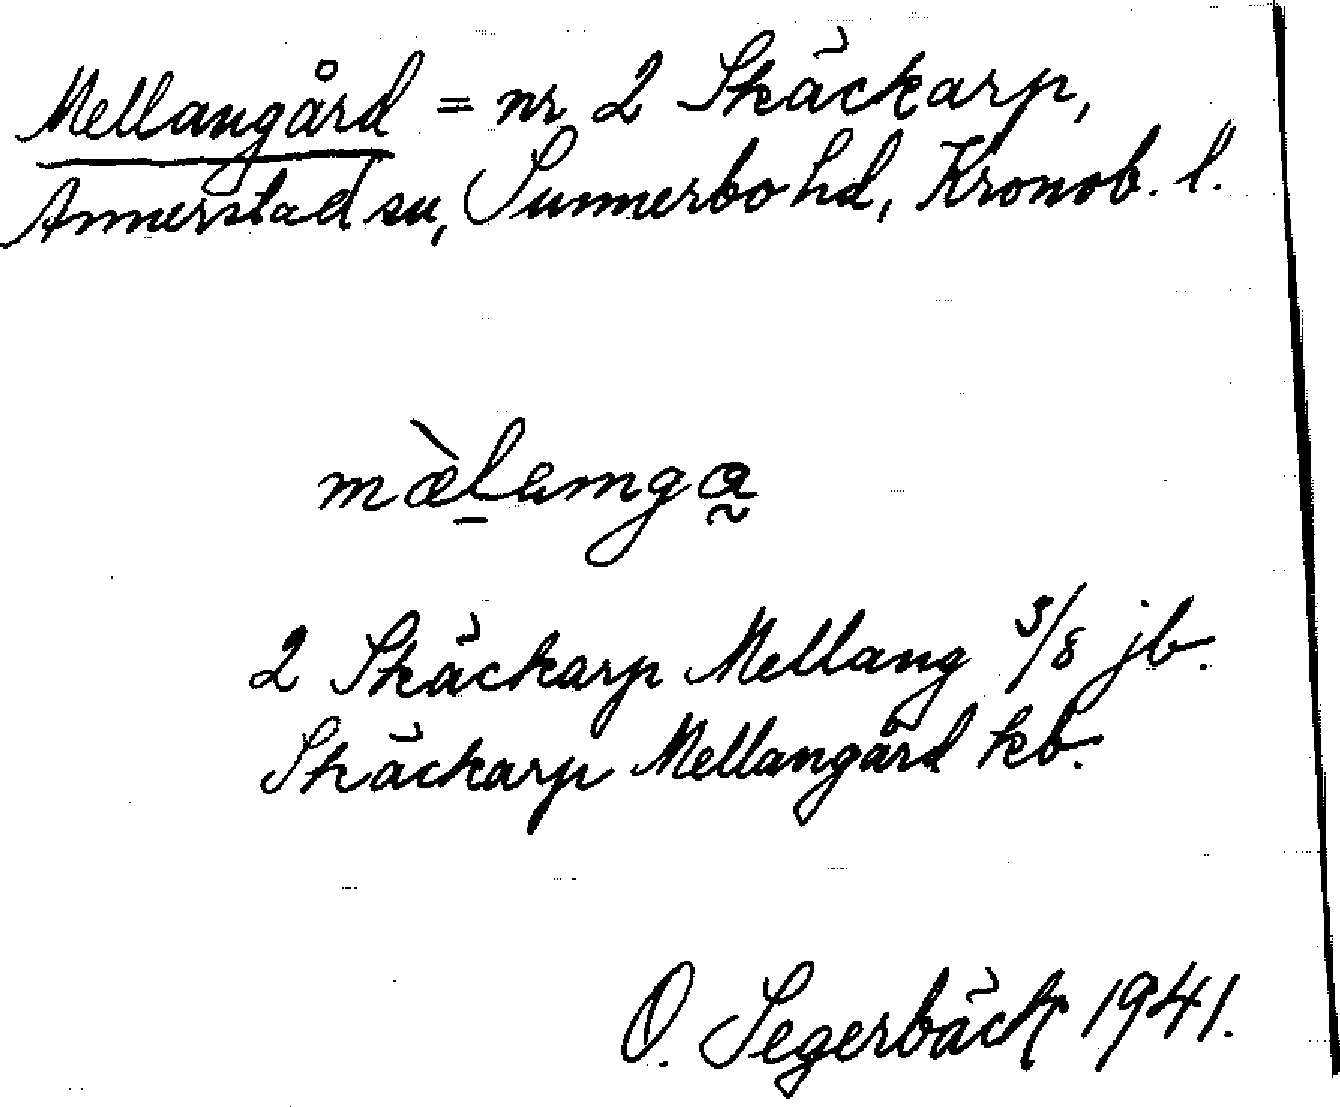 Mellangård = nr 2 Skäckarp,
Annerstad sn, Sunnerbo hd, Kronob. l.
mæ̀l̠amga̰
2 Skäckarp Mellang 5/8 jb.
Skäckarp Mellangård kb.
O. Segerbäck 1941.